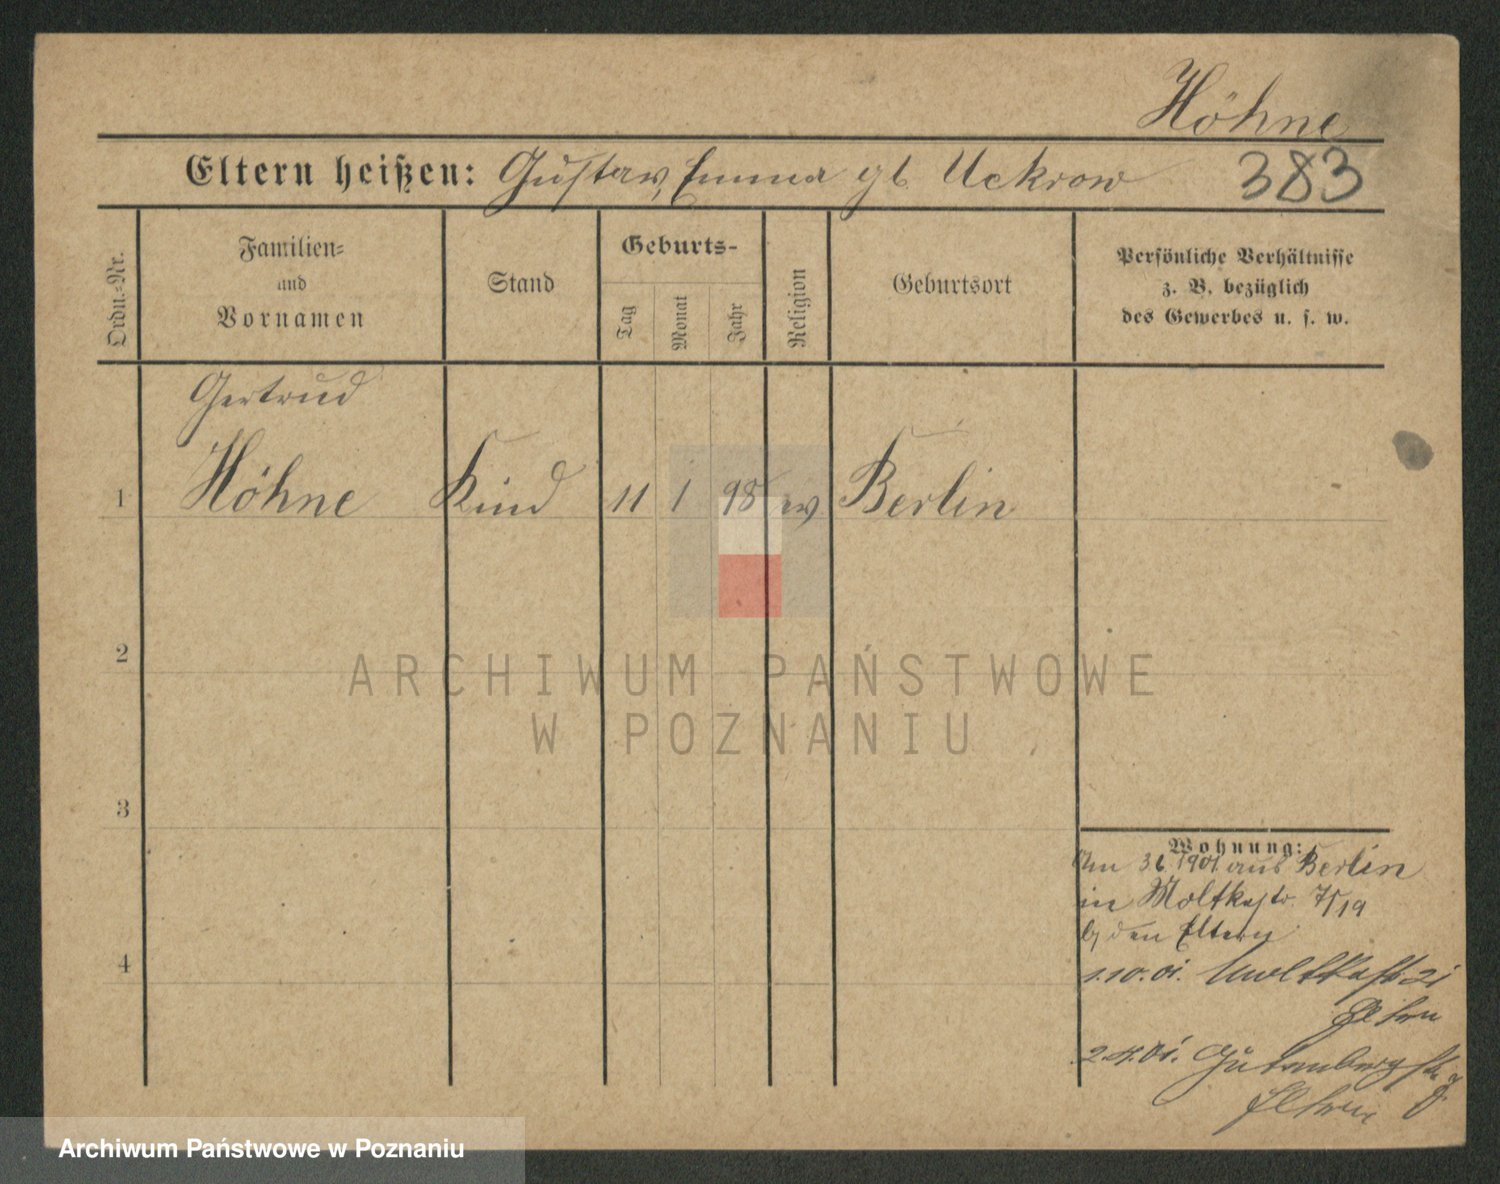 Höhne
Eltern heißen: Gustav, Emma gb Uckrow 383
Ordn.-Nr.
Familien-
und
Vornamen
Stand
Geburts-
Tag
Monat
Jahr
Religion
Geburtsort
Persönliche Verhältnisse
z. B. bezüglich
des Gewerbes u. s. w.
Gertrud
1 Höhne Kind 11 1 98 ev Berlin
2
ARCHIWUM PAŃSTWOWE
W POZNANIU
3
Wohnung:
Am 3.6.1901 aus Berlin
in Moltkestr. 7/19
b/ den Eltern
4
1.10.01. Moltkestr 21
Eltern
Gutenbergstr
Eltern
Archiwum Państwowe w Poznaniu